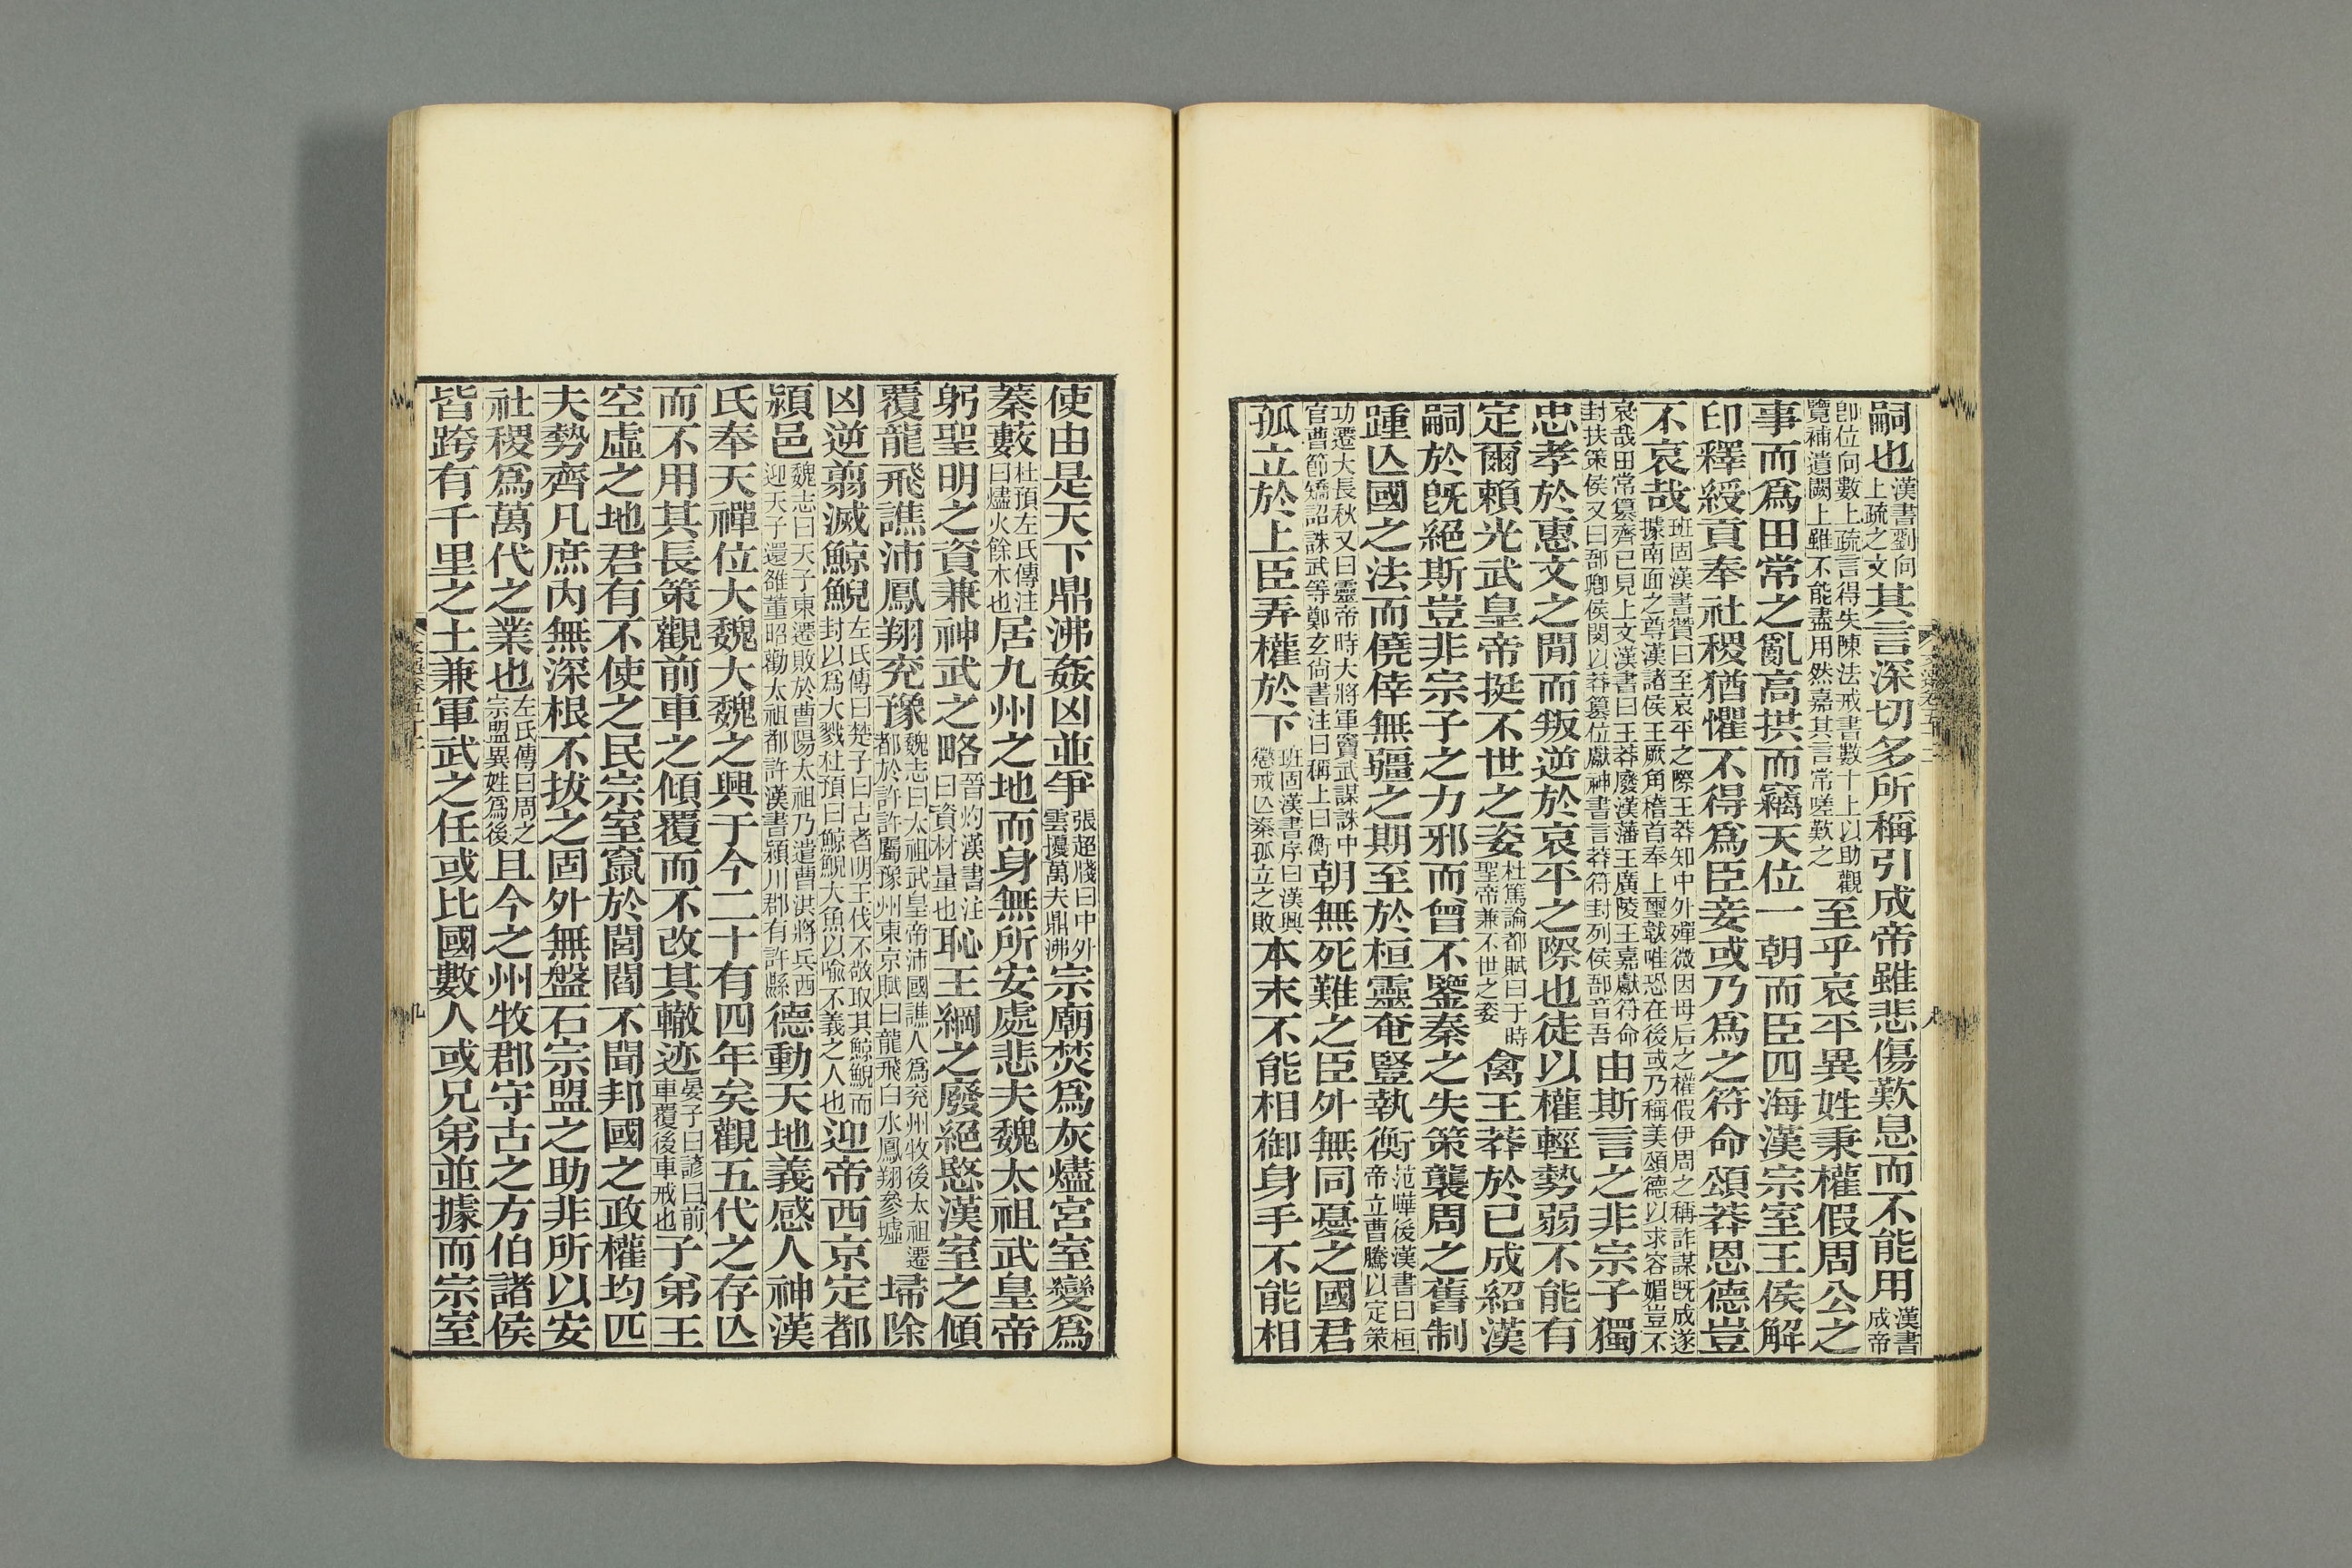 嗣也漢書劉向上疏之文其言深切多所稱引成帝雖悲傷歎息而不能用漢書成帝
即位向數上疏言得失陳法戒書數十上以助觀覽補遺闕上雖不能盡用然嘉其言常嗟歎之至乎哀平異姓秉權假周公之
事而爲田常之亂高拱而竊天位一朝而臣四海漢宗室王侯解
印釋綬貢奉社稷猶懼不得爲臣妾或乃爲之符命頌莽恩德豈
不哀哉班固漢書贊曰至哀平之際王莽知中外殫微因母后之權假伊周之稱詐謀旣成遂據南面之尊漢諸侯王厥角稽首奉上璽韍唯恐在後或乃稱美頌德以求容媚豈不
哀哉田常篡齊已見上文漢書曰王莽廢漢藩王廣陵王嘉獻符命封扶策侯又曰郚鄉侯閔以莽篡位獻神書言莽符封列侯郚音吾由斯言之非宗子獨
忠孝於惠文之閒而叛逆於哀平之際也徒以權輕勢弱不能有
定爾賴光武皇帝挺不世之姿杜篤論都賦曰于時聖帝兼不世之姿禽王莽於已成紹漢
嗣於旣絕斯豈非宗子之力邪而曾不鑒秦之失策襲周之舊制
踵亾國之法而僥倖無疆之期至於桓靈奄豎執衡范曄後漢書曰桓帝立曹騰以定策
功遷大長秋又曰靈帝時大將軍竇武謀誅中官曹節矯詔誅武等鄭玄尙書注曰稱上曰衡朝無死難之臣外無同憂之國君
孤立於上臣弄權於下班固漢書序曰漢興懲戒亾秦孤立之敗本末不能相御身手不能相
使由是天下鼎沸姦凶並爭張超牋曰中外雲擾萬夫鼎沸宗廟焚爲灰燼宮室變爲
蓁藪杜預左氏傳注曰燼火餘木也居九州之地而身無所安處悲夫魏太祖武皇帝
躬聖明之資兼神武之略晉灼漢書注曰資材量也恥王綱之廢絕愍漢室之傾
覆龍飛譙沛鳳翔兖豫魏志曰太祖武皇帝沛國譙人爲兖州牧後太祖遷都於許許屬豫州東京賦曰龍飛白水鳳翔參墟埽除
凶逆翦滅鯨鯢左氏傳曰楚子曰古者明王伐不敬取其鯨鯢而封以爲大戮杜預曰鯨鯢大魚以喩不義之人也迎帝西京定都
潁邑魏志曰天子東遷敗於曹陽太祖乃遣曹洪將兵西迎天子還雒董昭勸太祖都許漢書潁川郡有許縣德動天地義感人神漢
氏奉天禪位大魏大魏之興于今二十有四年矣觀五代之存亾
而不用其長策觀前車之傾覆而不改其轍迹晏子曰諺曰前車覆後車戒也子弟王
空虛之地君有不使之民宗室竄於閭閻不聞邦國之政權均匹
夫勢齊凡庶內無深根不拔之固外無盤石宗盟之助非所以安
社稷爲萬代之業也左氏傳曰周之宗盟異姓爲後且今之州牧郡守古之方伯諸侯
皆跨有千里之土兼軍武之任或比國數人或兄弟並據而宗室